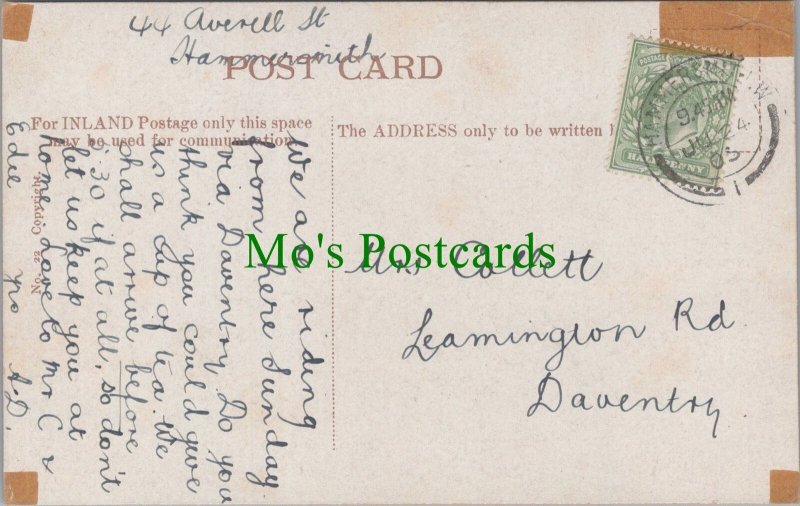 44 Averell St
Hammersmith
POST CARD
For INLAND Postage only this space
may be used for communication.
The ADDRESS only to be written
No. 22 Copyright.
We are riding
from here Sunday
via Daventry. Do you
think you could give
us a cup of tea. We
shall arrive before
.30 if at all, so don't
let us keep you at
home. Love to Mr C &
Edie yrs A.D.
Mrs Collett
Leamington Rd.
Daventry
Mo's Postcards
POSTAGE
9.45
24
05
1